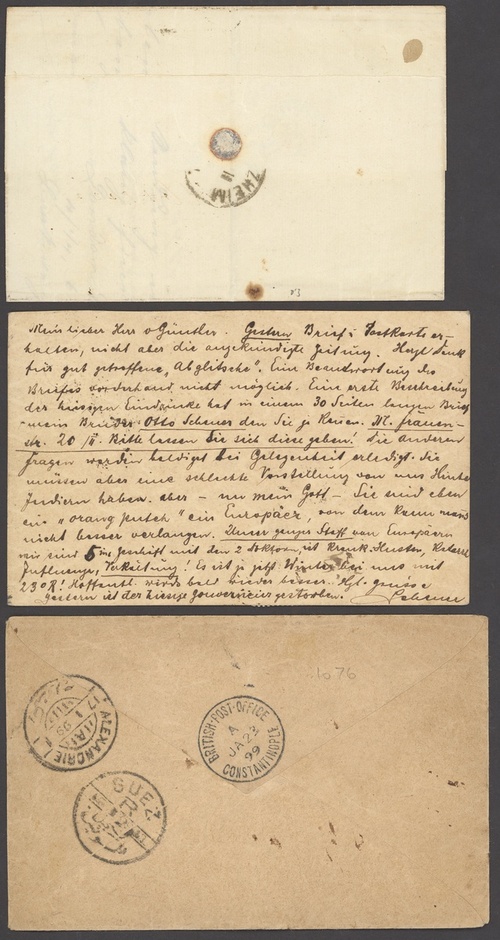 ZHEIM
11
Mein lieber Herr v Günther. Gestern Brief & Postkarte er-
halten, nicht aber die angekündigte Zeitung. Herzl Dank
fürs gut getroffene, Abglitsche". Eine Beantwortung des
Briefes vorderhand nicht möglich. Eine erste Beschreibung
der hiesigen Eindrücke hat in einem 30 Seiten langen Brief
mein Bruder Otto Scheuer den Sie ja kennen. M. frauen-
str. 20/II. Bitte lassen Sie sich diese geben! Die anderen
fragen werden baldigst bei Gelegenheit erledigt. Sie
müssen aber eine schlechte Vorstellung von uns Hinter
Indiern haben. aber – nu mein Gott – Sie sind eben
ein "orang puteh" ein Europäer, von dem kann man
nicht besser verlangen. Unser ganzer Staff von Europäern
wir sind 5 im Geschäft mit den 2 Doktoren, ist krank. Husten,
Influenza, Erkältung! Es ist ja jetzt Winter bei uns mit
23° R! Hoffentl. wirds bald wieder besser. Hzl. Grüsse
Gestern ist der hiesige Gouverneur gestorben. Scheuer
1076
ALEXANDRIE
17 I 99
BRITISH·POST·OFFICE
A
JA 23
99
CONSTANTINOPLE
SUEZ